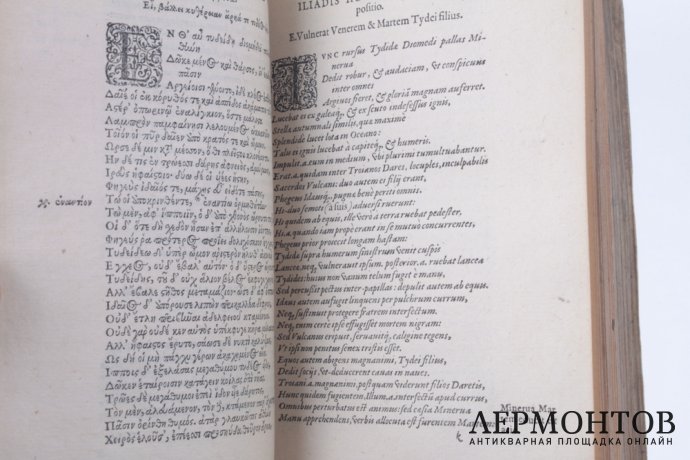 Εἰ, βάλλει κυθέρειαν ἄρηά τ
ΝΘ' αὖ τυδείδῃ διομήδεϊ
Δῶκε μένος καὶ θάρσος, ἵν'
πᾶσιν
Ἀργείοισι γένοιτο, ἰδὲ κλέος
Δαῖέ οἱ ἐκ κόρυθός τε καὶ ἀσπίδος
Ἀστέρ' ὀπωρινῷ ἐναλίγκιον, ὅστε μάλιστα
Λαμπρὸν παμφαίνησι λελουμένος
Τοῖόν οἱ πῦρ δαῖεν ἀπὸ κρατός τε καὶ ὤμων
Ὦρσε δέ μιν κατὰ μέσσον, ὅθι πλεῖστοι κλονέοντο.
Ἦν δέ τις ἐν τρώεσσι δάρης ἀφνειὸς, ἀμύμων,
Ἱρεὺς ἡφαίστοιο· δύω δέ οἱ υἱέες ἤστην,
Φηγεὺς ἰδαῖός τε, μάχης εὖ εἰδότε πάσης
Τώ οἱ ἀποκρινθέντε, ἐναντίω ὁρμηθήτην
※ ἐναντίον
Τὼ μὲν, ἀφ' ἵπποιϊν, ὁ δ' ἀπὸ χθονὸς
Οἱ δ' ὅτε δὴ σχεδὸν ἦσαν ἐπ' ἀλλήλοισιν ἰόντες,
Φηγεύς ῥα πρότερος προΐει δολιχόσκιον ἔγχος
Τυδείδεω δ' ὑπὲρ ὦμον ἀριστερὸν
Ἔγχεος, οὐδ' ἔβαλ' αὐτόν· ὁ δ'
Τυδείδης, τοῦ δ' οὐχ ἅλιον βέλος
Ἀλλ' ἔβαλε στῆθος μεταμάζιον
Ἰδαῖος δ' ἀπόρουσε λιπὼν περικαλλέα
Οὐδ' ἔτλη περιβῆναι ἀδελφειοῦ κταμένοιο
Οὐδὲ γὰρ οὐδέ κεν αὐτὸς ὑπέκφυγε
Ἀλλ' ἥφαιστος ἔρυτο, σάωσε δὲ νυκτὶ
Ὡς δή οἱ μὴ πάγχυ γέρων ἀκαχήμενος εἴη.
Ἵππους δ' ἐξελάσας μεγαθύμου
Δῶκεν ἑταίροισιν κατάγειν κοίλας ἐπὶ
Τρῶες δὲ μεγάθυμοι ἐπεὶ ἴδον
Τὸν μὲν, ἀλευάμενον, τὸν δὲ κτάμενον
Πᾶσιν ὀρίνθη θυμός· ἀτὰρ γλαυκῶπις
Χειρὸς ἑλοῦσ', ἐπέεσσι
ILIADIS
positio.
E. Vulnerat Venerem & Martem Tydei filius.
TVNC rursus Tydidæ Diomedi pallas Minerua
Dedit robur, & audaciam, ut conspicuus
inter omnes
Argiuos fieret, & gloriã magnam auferret.
Lucebat ei ex galeaq́;, & ex scuto indefessus ignis,
Stellæ autumnali similis, quæ maximè
Splendide lucet lota in Oceano:
Talis ei ignis lucebat à capiteq́;, & humeris.
Impulit.a.eum in medium, vbi plurimi tumultuabantur.
Erat.a.quidam inter Troianos Dares, locuples, inculpabilis
Sacerdos Vulcani: duo autem ei filij erant,
Phegeus Idæusq́;, pugnæ bene periti omnis.
Hi duo semoti (à suis) aduersi ruerunt:
Hi quidem ab equis, ille verò a terra ruebat pedester.
Hi.a.quando iam propè erant in se mutuo concurrentes,
Phegeus prior proiecit longam hastam:
Tydidæ supra humerum sinistrum venit cuspis
Lanceæ: neq́; vulnerauit ipsum. posterior.a. ruebat lancea
Tydides: huius non vanum telum fugit è manu,
Sed percussit pectus inter papillas: depulit autem ab equis.
Idæus autem aufugit linquens perpulchrum currum,
Neq́; sustinuit protegere fratrem interfectum.
Neq́; enim certè ipse effugisset mortem nigram:
Sed Vulcanus eripuit, seruauitq́; caligine tegens,
Vt ipsi non penitus senex tristis esset.
Equos autem abigens magnanimi, Tydei filius,
Dedit socijs vt deducerent cauas in naues.
Troiani.a. magnanimi, postquam viderunt filios Daretis,
Hunc quidem fugientem, illum.a. interfectũ apud currum,
Omnibus perturbatus est animus: sed cæsia Minerua
Manu apprehendens, verbis allocuta est furentem Martem
Minerua Mar
ЛЕРМОНТОВ
АНТИКВАРНАЯ ПЛОЩАДКА ОНЛАЙН